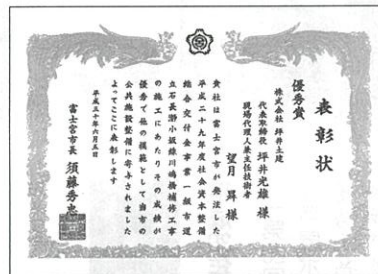 表彰状
優秀賞
株式会社 坪井土建
代表取締役 坪井光雄 様
現場代理人兼主任技術者
望月 昇 様
貴社は富士宮市が発注した
平成二十九年度社会資本整備
総合交付金事業一級市道
立石長瀞小坂線川嶋橋補修工事
の施工にあたりその成績が
優秀で他の模範として当市の
公共施設整備に寄与されました
よってここに表彰します
平成三十年六月五日
富士宮市長 須藤秀忠